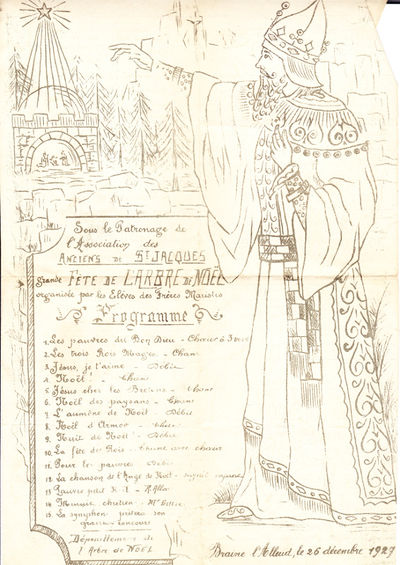 Sous le Patronage de
l'Association des
ANCIENS DE St JACQUES
Grande FÊTE DE L'ARBRE DE NOËL
organisée par les Elèves des Frères Maristes
Programme
1. Les pauvres du Bon Dieu - Chœur à 3 voix
2. Les trois Rois Mages - Chant
3. Jésus, je t'aime - Débit
4. Noël! - Chant
5. Jésus chez les Bretons - Chant
6. Noël des paysans - Chant
7. L'aumône de Noël - Débit
8. Noël d'Armor - Chant
9. Nuit de Noël - Débit
10. La fête des Rois - Chant avec chœur
11. Pour les pauvres - Débit
12. La chanson de l'Ange de Noël -
13. Pauvre petit
14. Minuit, chrétien - Mr
15. La symphonie prêtera son
gracieux concours
Dépouillement de
l'Arbre de NOËL
Braine l'Alleud, le 26 décembre 1927